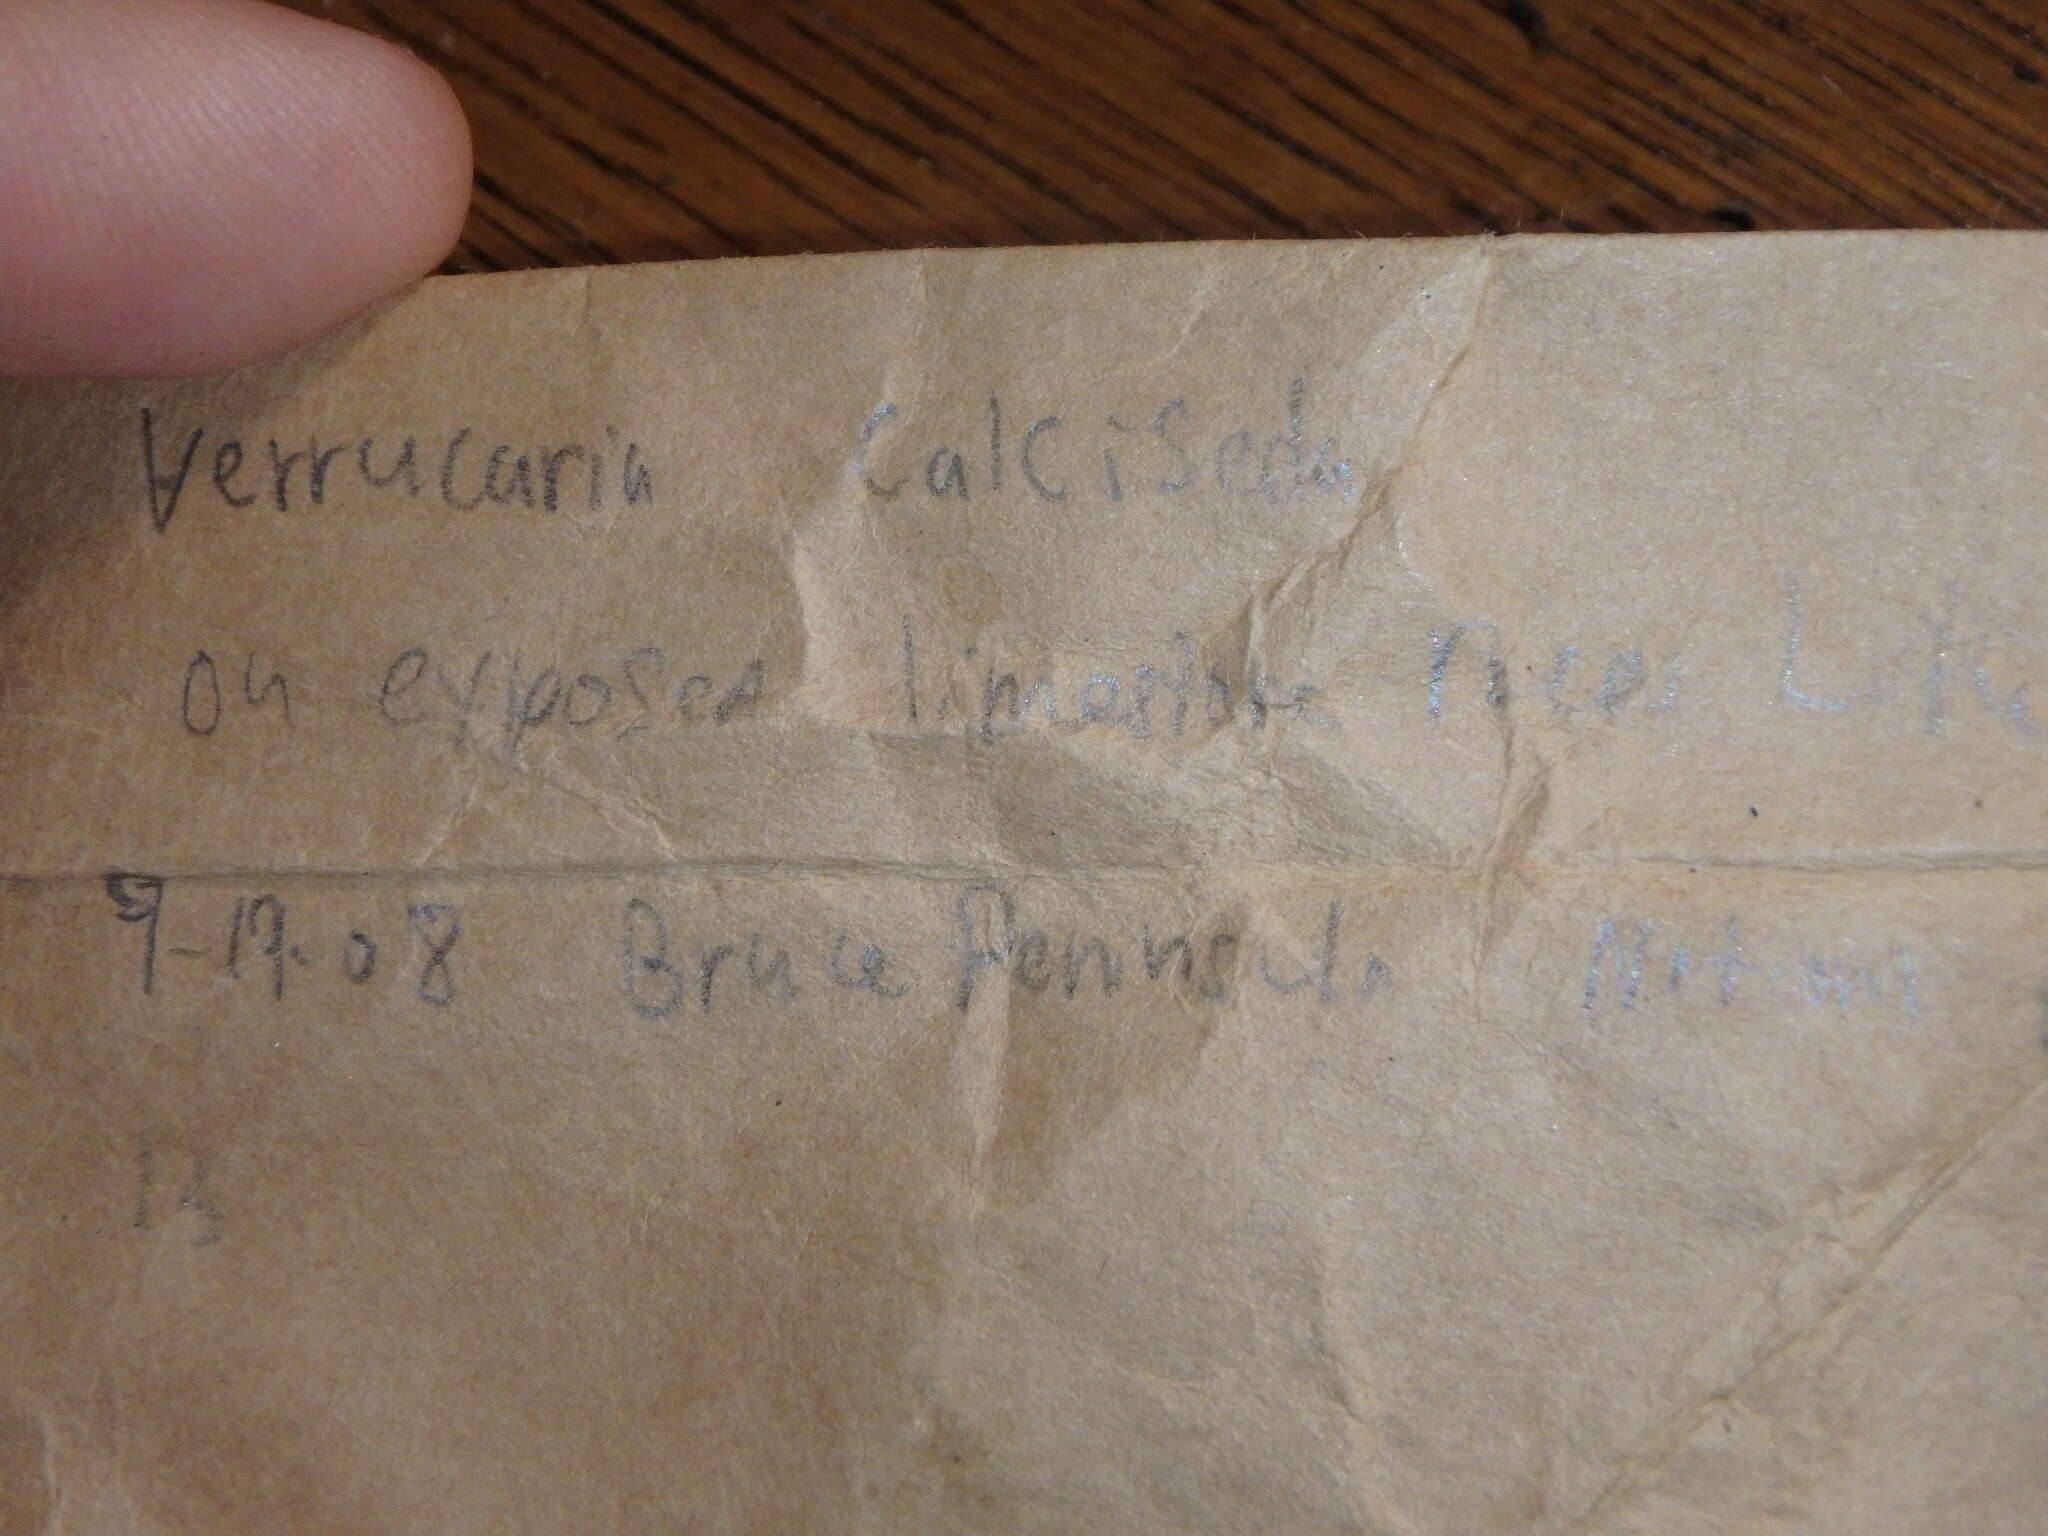 Verrucaria Calciseda
on exposed limestone near Lake
9-17-08 Bruce Peninsula
13